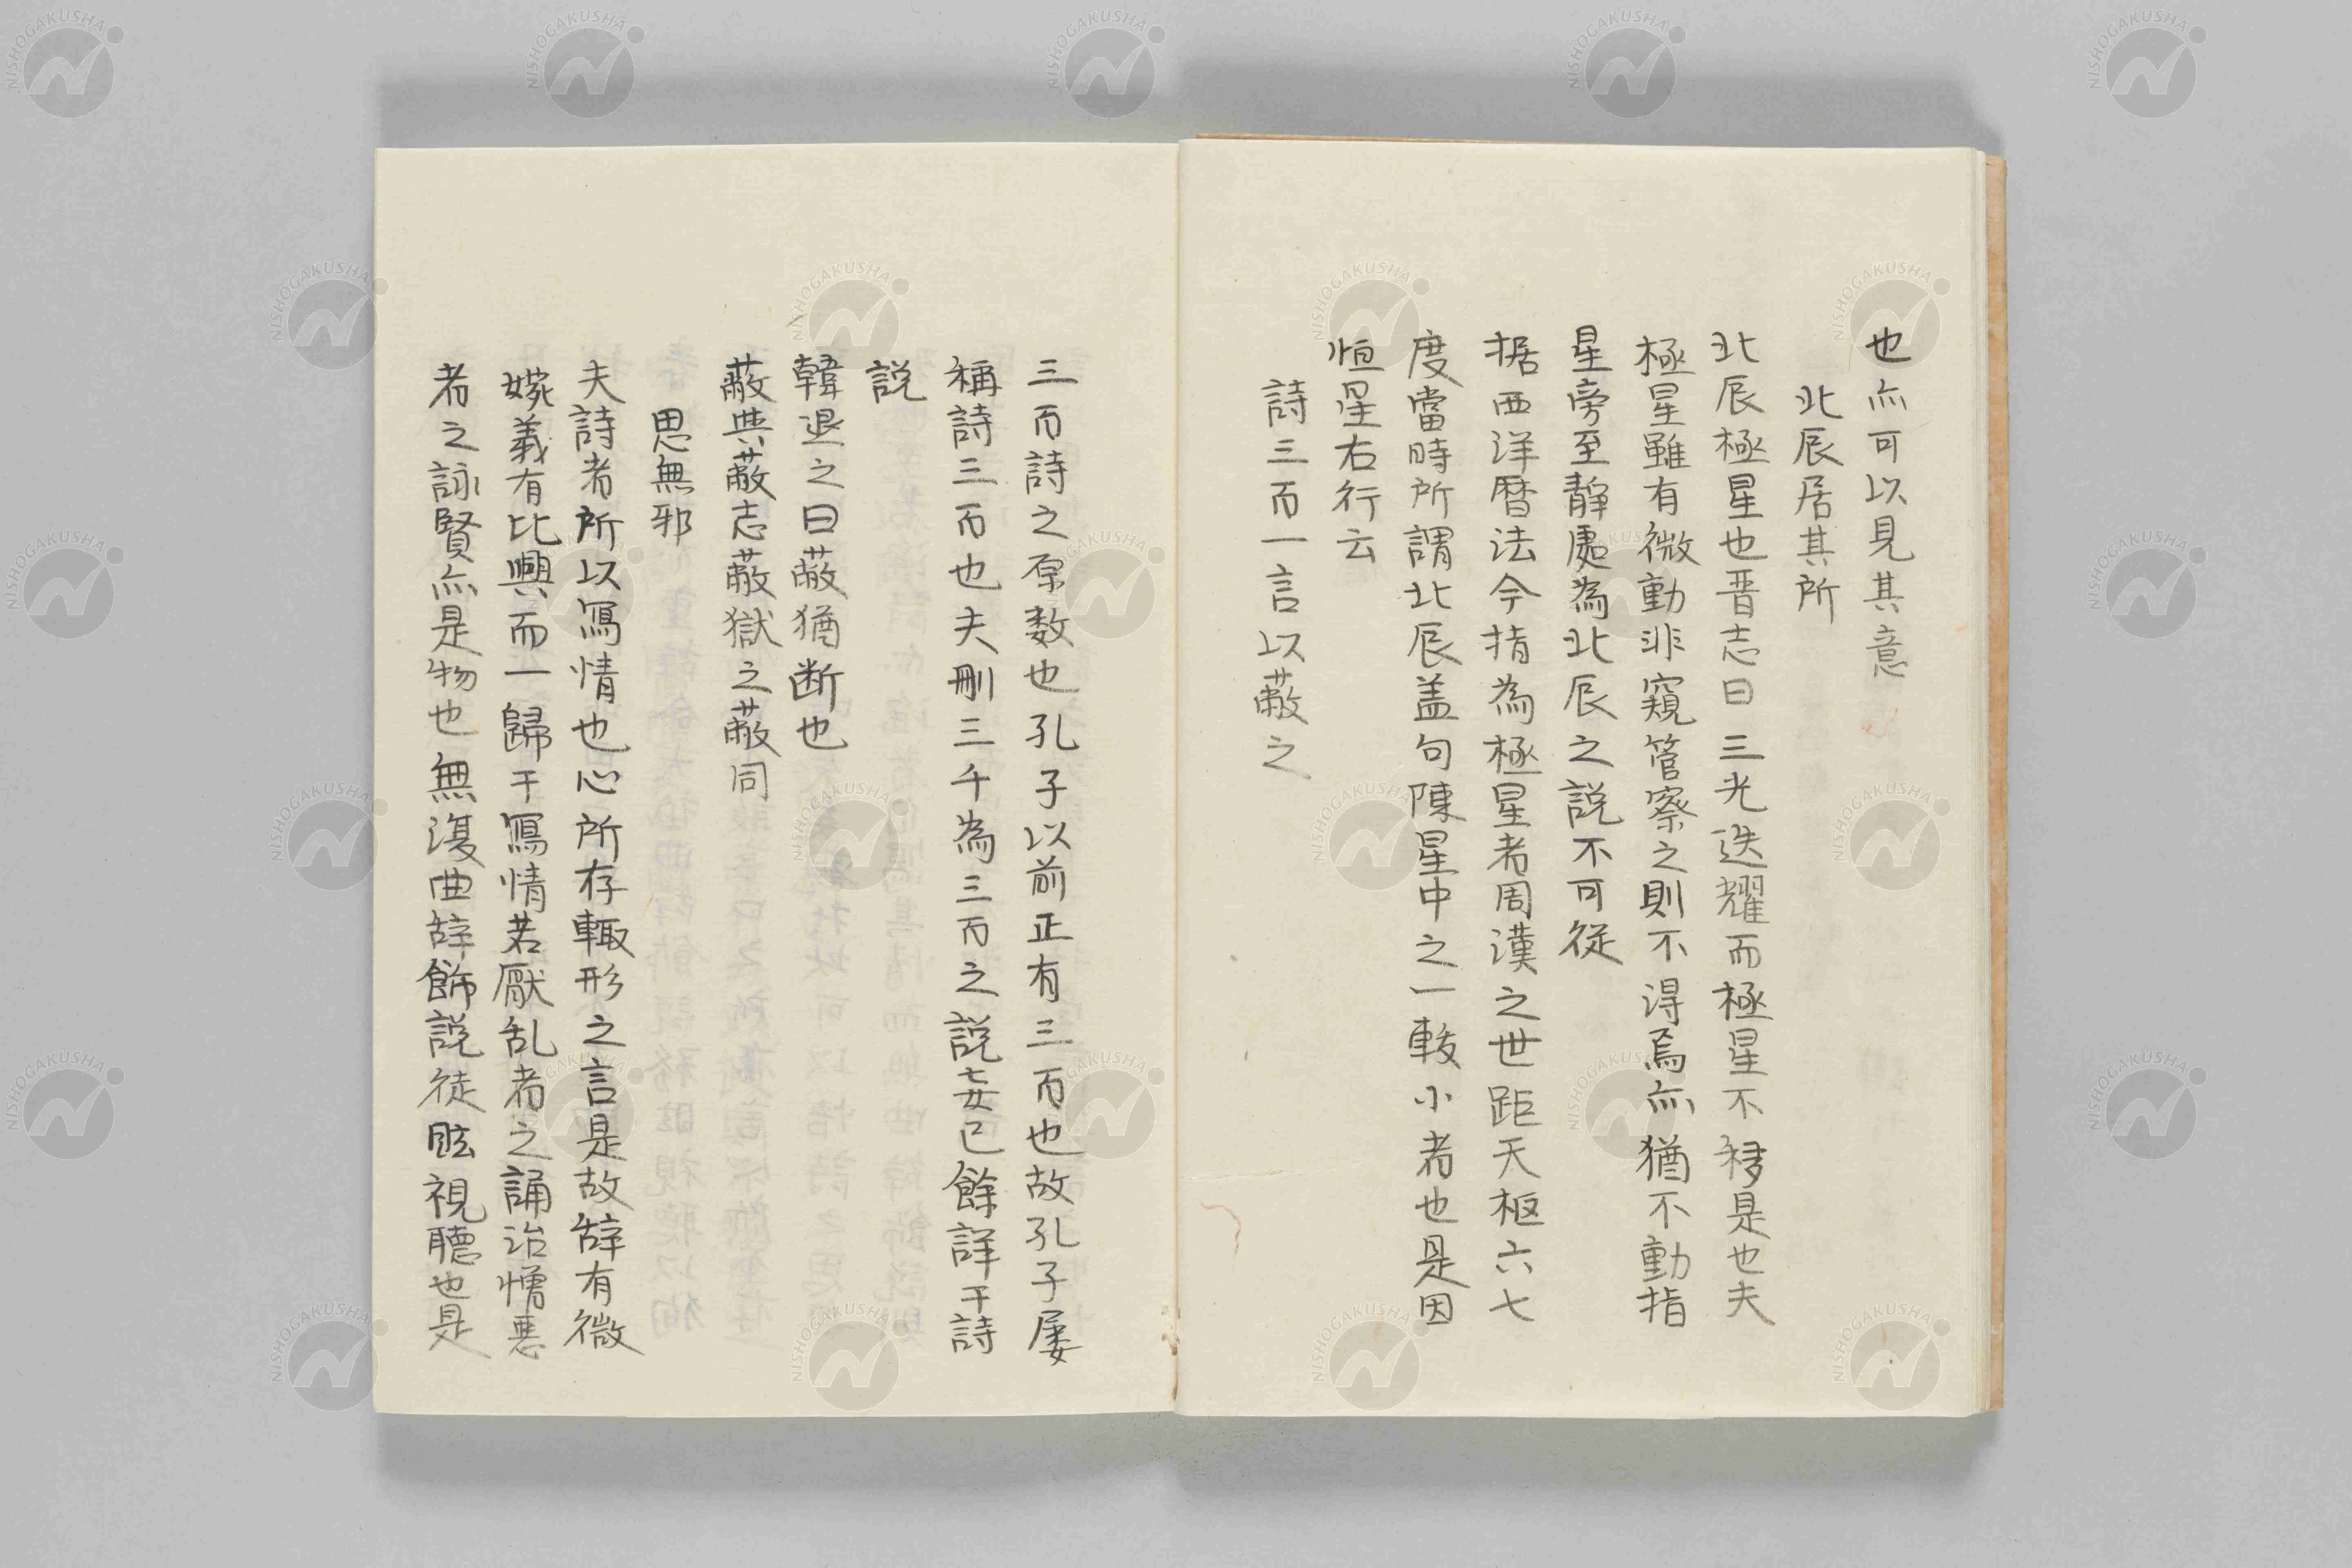 也亦可以見其意
北辰居其所
北辰極星也晋志曰三光迭耀而極星不移是也夫
極星雖有微動非窺管察之則不得焉亦猶不動指
星旁至静處為北辰之説不可従
据西洋暦法今指為極星者周漢之世距天枢六七
度當時所謂北辰盖句陳星中之一較小者也是因
恒星右行云
詩三百一言以蔽之
三百詩之原数也孔子以前正有三百也故孔子屡
稱詩三百也夫刪三千為三百之説妄已餘詳于詩
説
韓退之曰蔽猶断也
蔽典蔽志蔽獄之蔽同
思無邪
夫詩者所以寫情也心所存輙形之言是故辞有微
婉義有比興而一歸于寫情若厭乱者之誦治憎悪
者之詠賢亦是物也無復曲辞飾説徒眩視聴也是
NISHOGAKUSHA